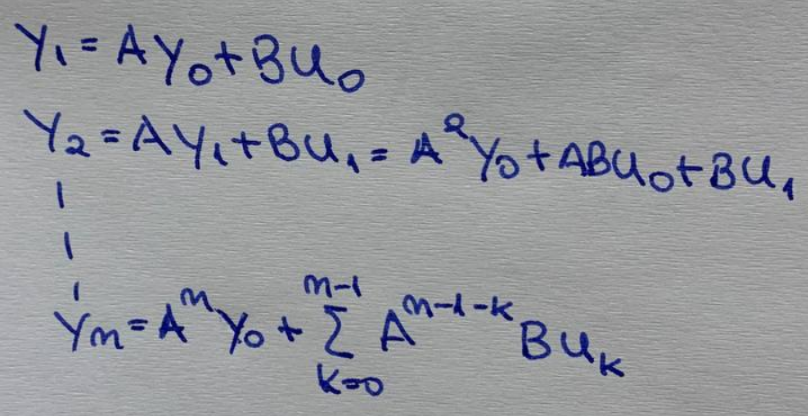 Y₁ = AY₀ + BU₀
Y₂ = AY₁ + BU₁ = A²Y₀ + ABU₀ + BU₁
Yₙ = AⁿY₀ + ∑ₖ₌₀ⁿ⁻¹ Aⁿ⁻¹⁻ᵏBUₖ